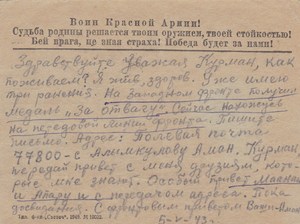 Воин Красной Армии!
Судьба родины решается твоим оружием, твоей стойкостью!
Бей врага, не зная страха! Победа будет за нами!
Здравствуйте Уважая Курман, как
поживаем? Я жив, здоров. Уже имею
три ранений. На западном фронте получил
медаль „За отвагу“ Сейчас нахожусь
на передовой линии фронта. Пишите
письмо. Адрес: Полевая почта
77800-с Алимкулову Аман. Курман,
передай привет с меня друзьям, кото-
рые мне знают. Особый привет
и передачей адреса. Пока
С горячим приветом
5-V-43.